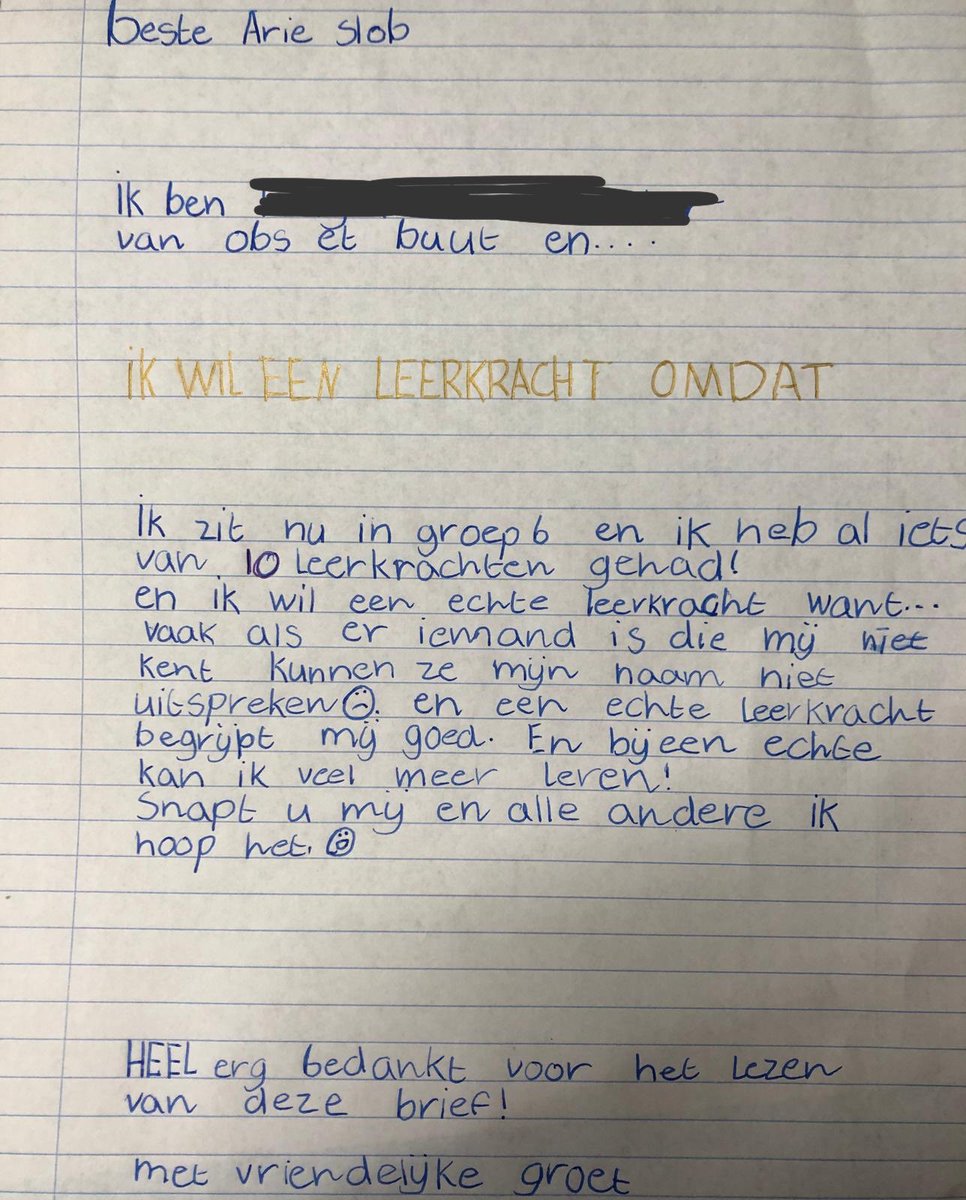 beste Arie slob
ik ben
van obs èt buut en.....
iK WIL EEN LEERKRACHT OMDAT
Ik zit nu in groep 6 en ik heb al iets
van 10 leerkrachten gehad!
en ik wil een echte leerkracht want...
vaak als er iemand is die mij niet
kent kunnen ze mijn naam niet
uitspreken☹. en een echte leerkracht
begrijpt mij goed. En bij een echte
kan ik veel meer leren!
Snapt u mij en alle andere ik
hoop het. ☹
HEEL erg bedankt voor het lezen
van deze brief!
met vriendelijke groet